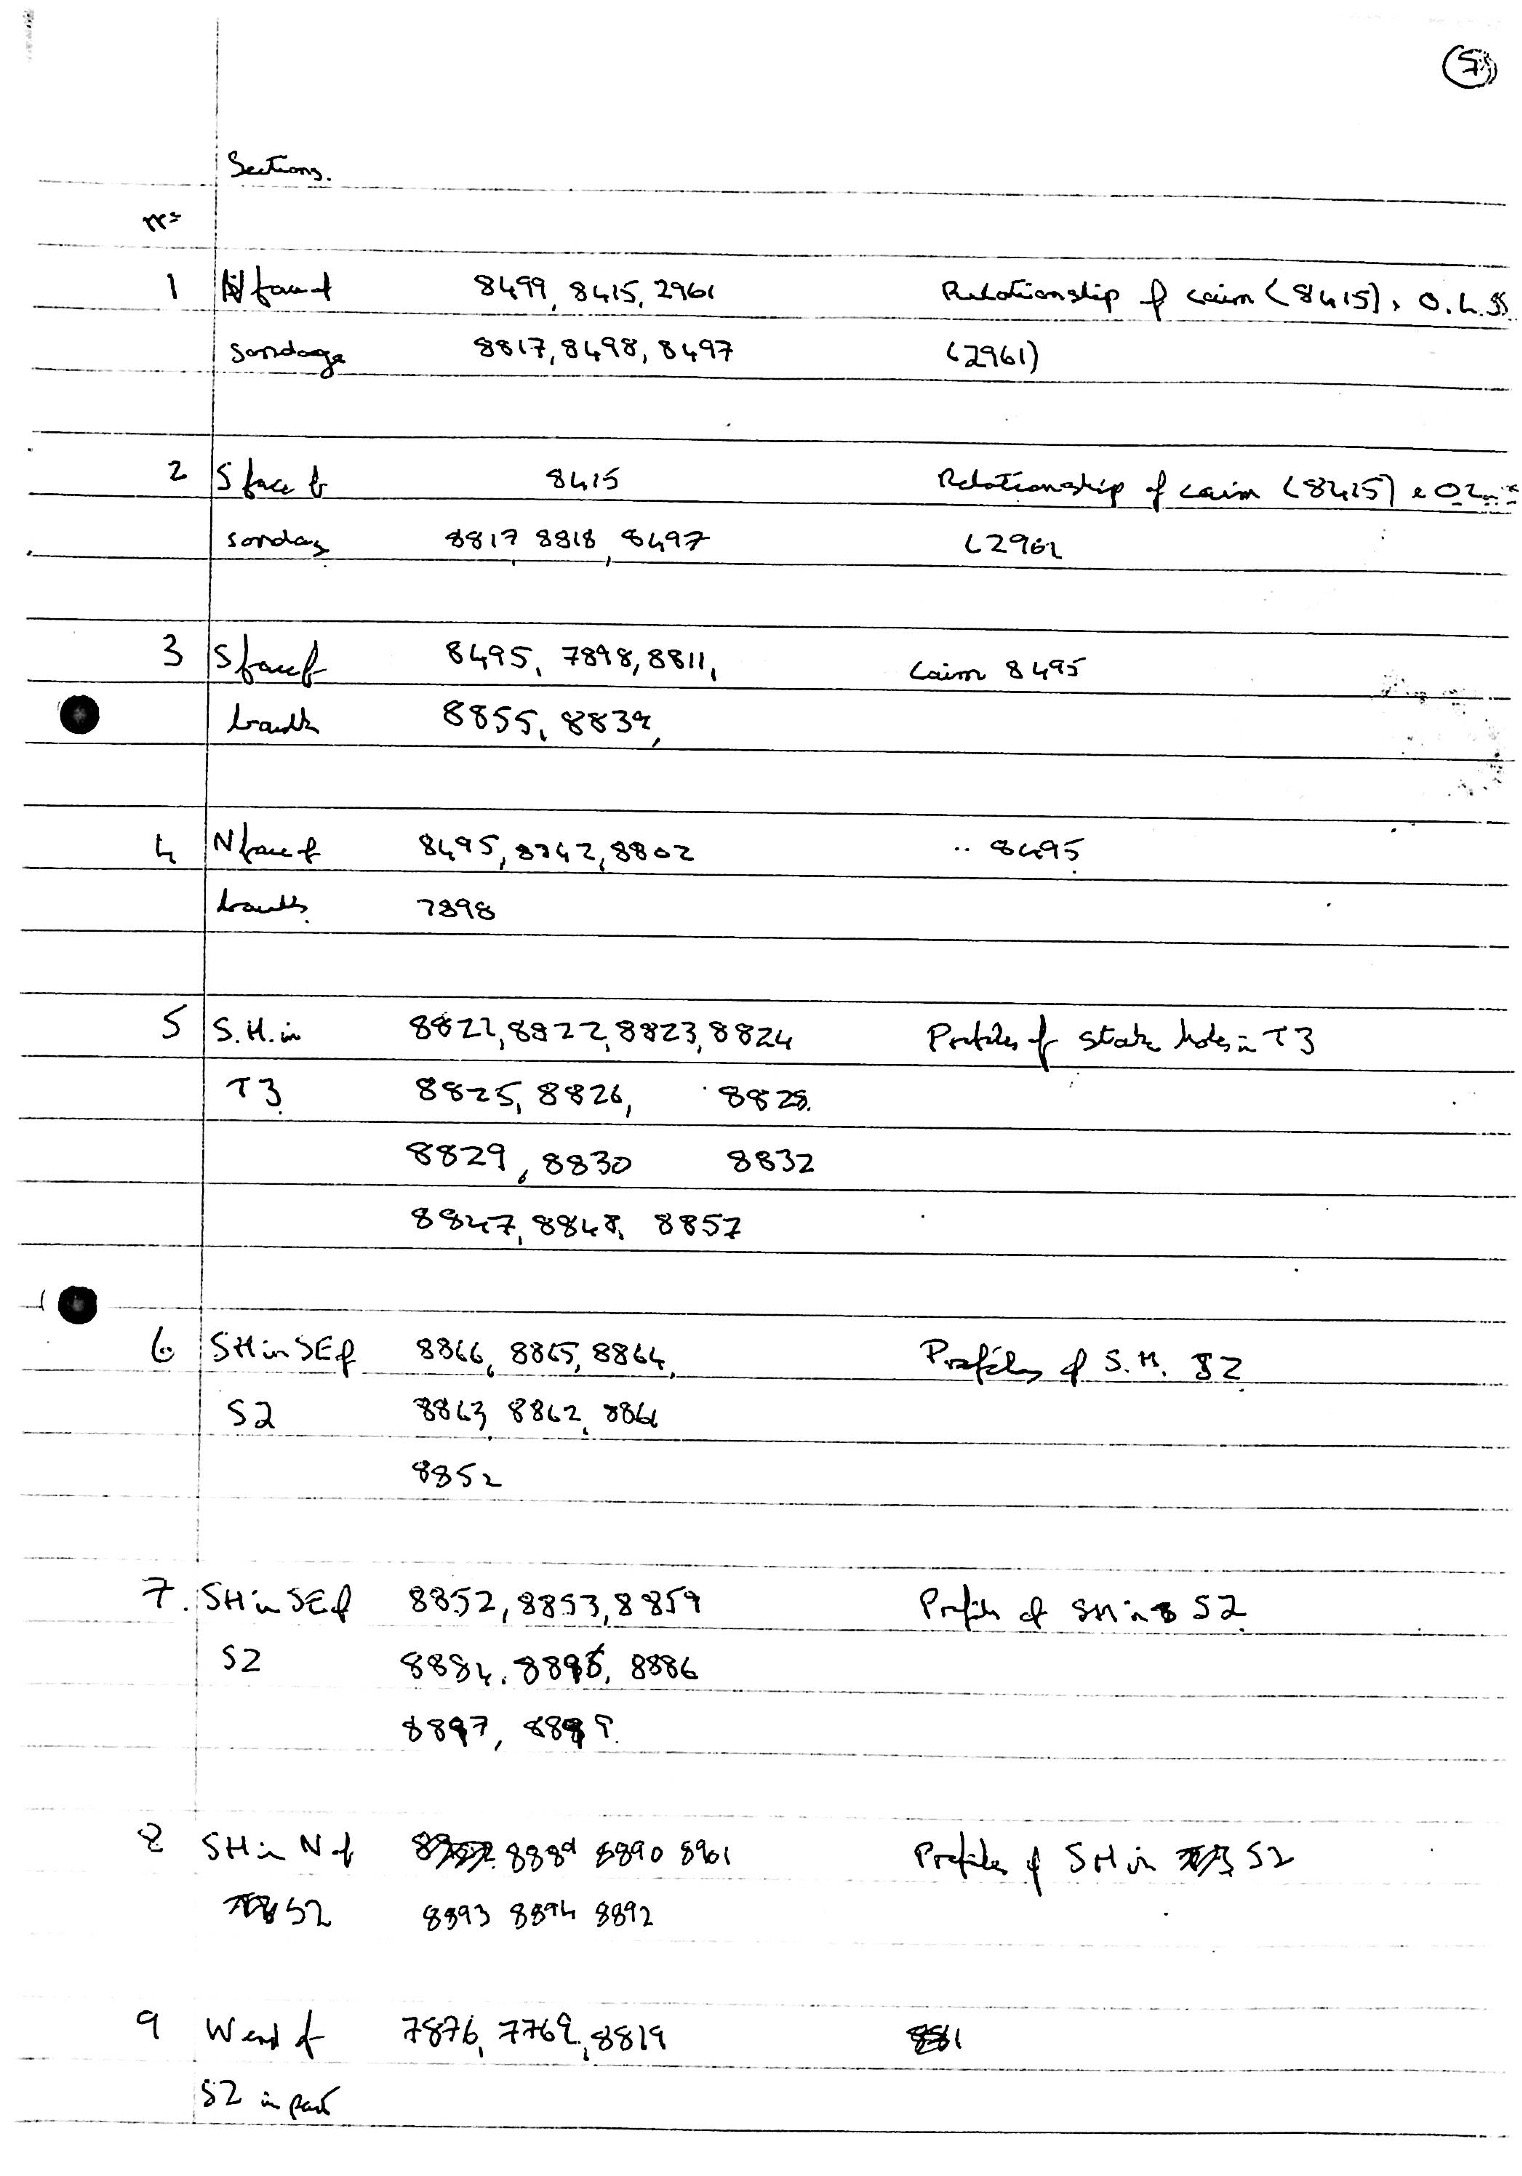 5
Sections.
nº
1 N face of 8499, 8415, 2961 Relationship of cairn (8415), O.L.SS
sondage 8817, 8498, 8497 (2961)
2 S face of 8415 Relationship of cairn (8415) & OL
sondag 8817, 8818, 8497 (2961
3 S face of 8495, 7898, 8811, Cairn 8495
baulk 8855, 8839,
4 N face of 8495, 8842, 8802 .. 8495
baulk. 7898
5 S.H. in 8821, 8822, 8823, 8824 Profiles of stake holes in T3
T3 8825, 8826, 8828.
8829, 8830 8832
8847, 8848, 8857
6 SH in SE of 8866, 8865, 8864, Profiles of S.H. S2
S2 8863, 8862, 8861
8852
7. SH in SE of 8852, 8853, 8859 Profiles of SH in S2
S2 8884, 8886
8 SH in N of 8889 8890 8901 Profiles of SH in S2
S2 8893 8894 8892
9 W end of 7876, 7769, 8819
S2 in part